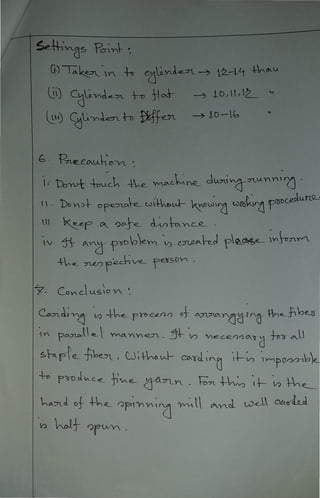 Settings Point :
(i) Taker in to cylinder → 12-14 thau
(ii) Cylinder to flat → 10,11,12 "
(iii) Cylinder to Doffer → 10-16 "
6. Precaution :
i. Don't touch the machine during running.
ii. Don't operate without knowing working procedures
iii. Keep a safe distance.
iv. If any problem is created please inform
the respective person.
7. Conclusion :
Carding is the process of arrangying the fibes
in parallel manner. It is necessary for all
staple fiber. Without carding it is impossible
to produce fine yarn. For this it is the
hard of the spinning mill and well carded
is half spun.